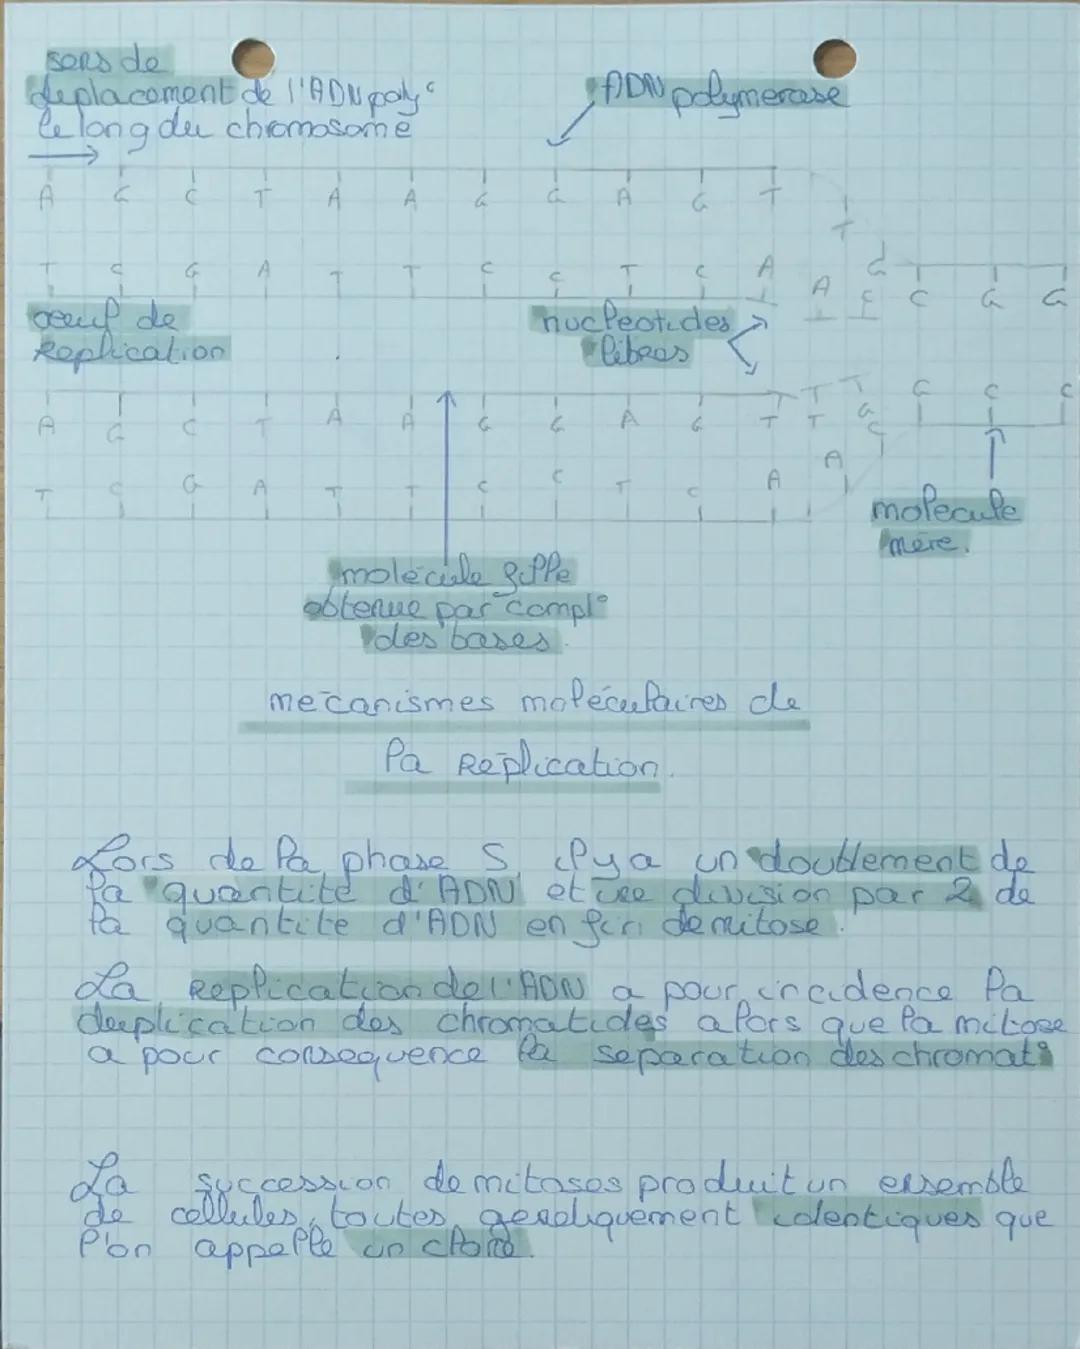 sens de
deplacement de l'ADN poly°
le long du chromosome
ADN polymerase
A G C T A A G G A G T
T
T C G A T T C C T C A
A
G
C
C G G
oeuf de
Replication
nucleotides
libres
A G C T A A G G A G T T
T T G
C
G C C
T C G A T T C C T C A
A
molecule
mère.
molécule fille
obtenue par compl°
des bases.
mécanismes moléculaires de
la Réplication.
Lors de la phase S, il y a un doublement de
la quantité d'ADN et une division par 2 de
la quantité d'ADN en fin de mitose.
La Replication de l'ADN a pour incidence la
duplication des chromatides alors que la mitose
a pour consequence la separation des chromat°
La succession de mitoses produit un ensemble
de cellules, toutes genetiquement identiques que
l'on appelle un clone.